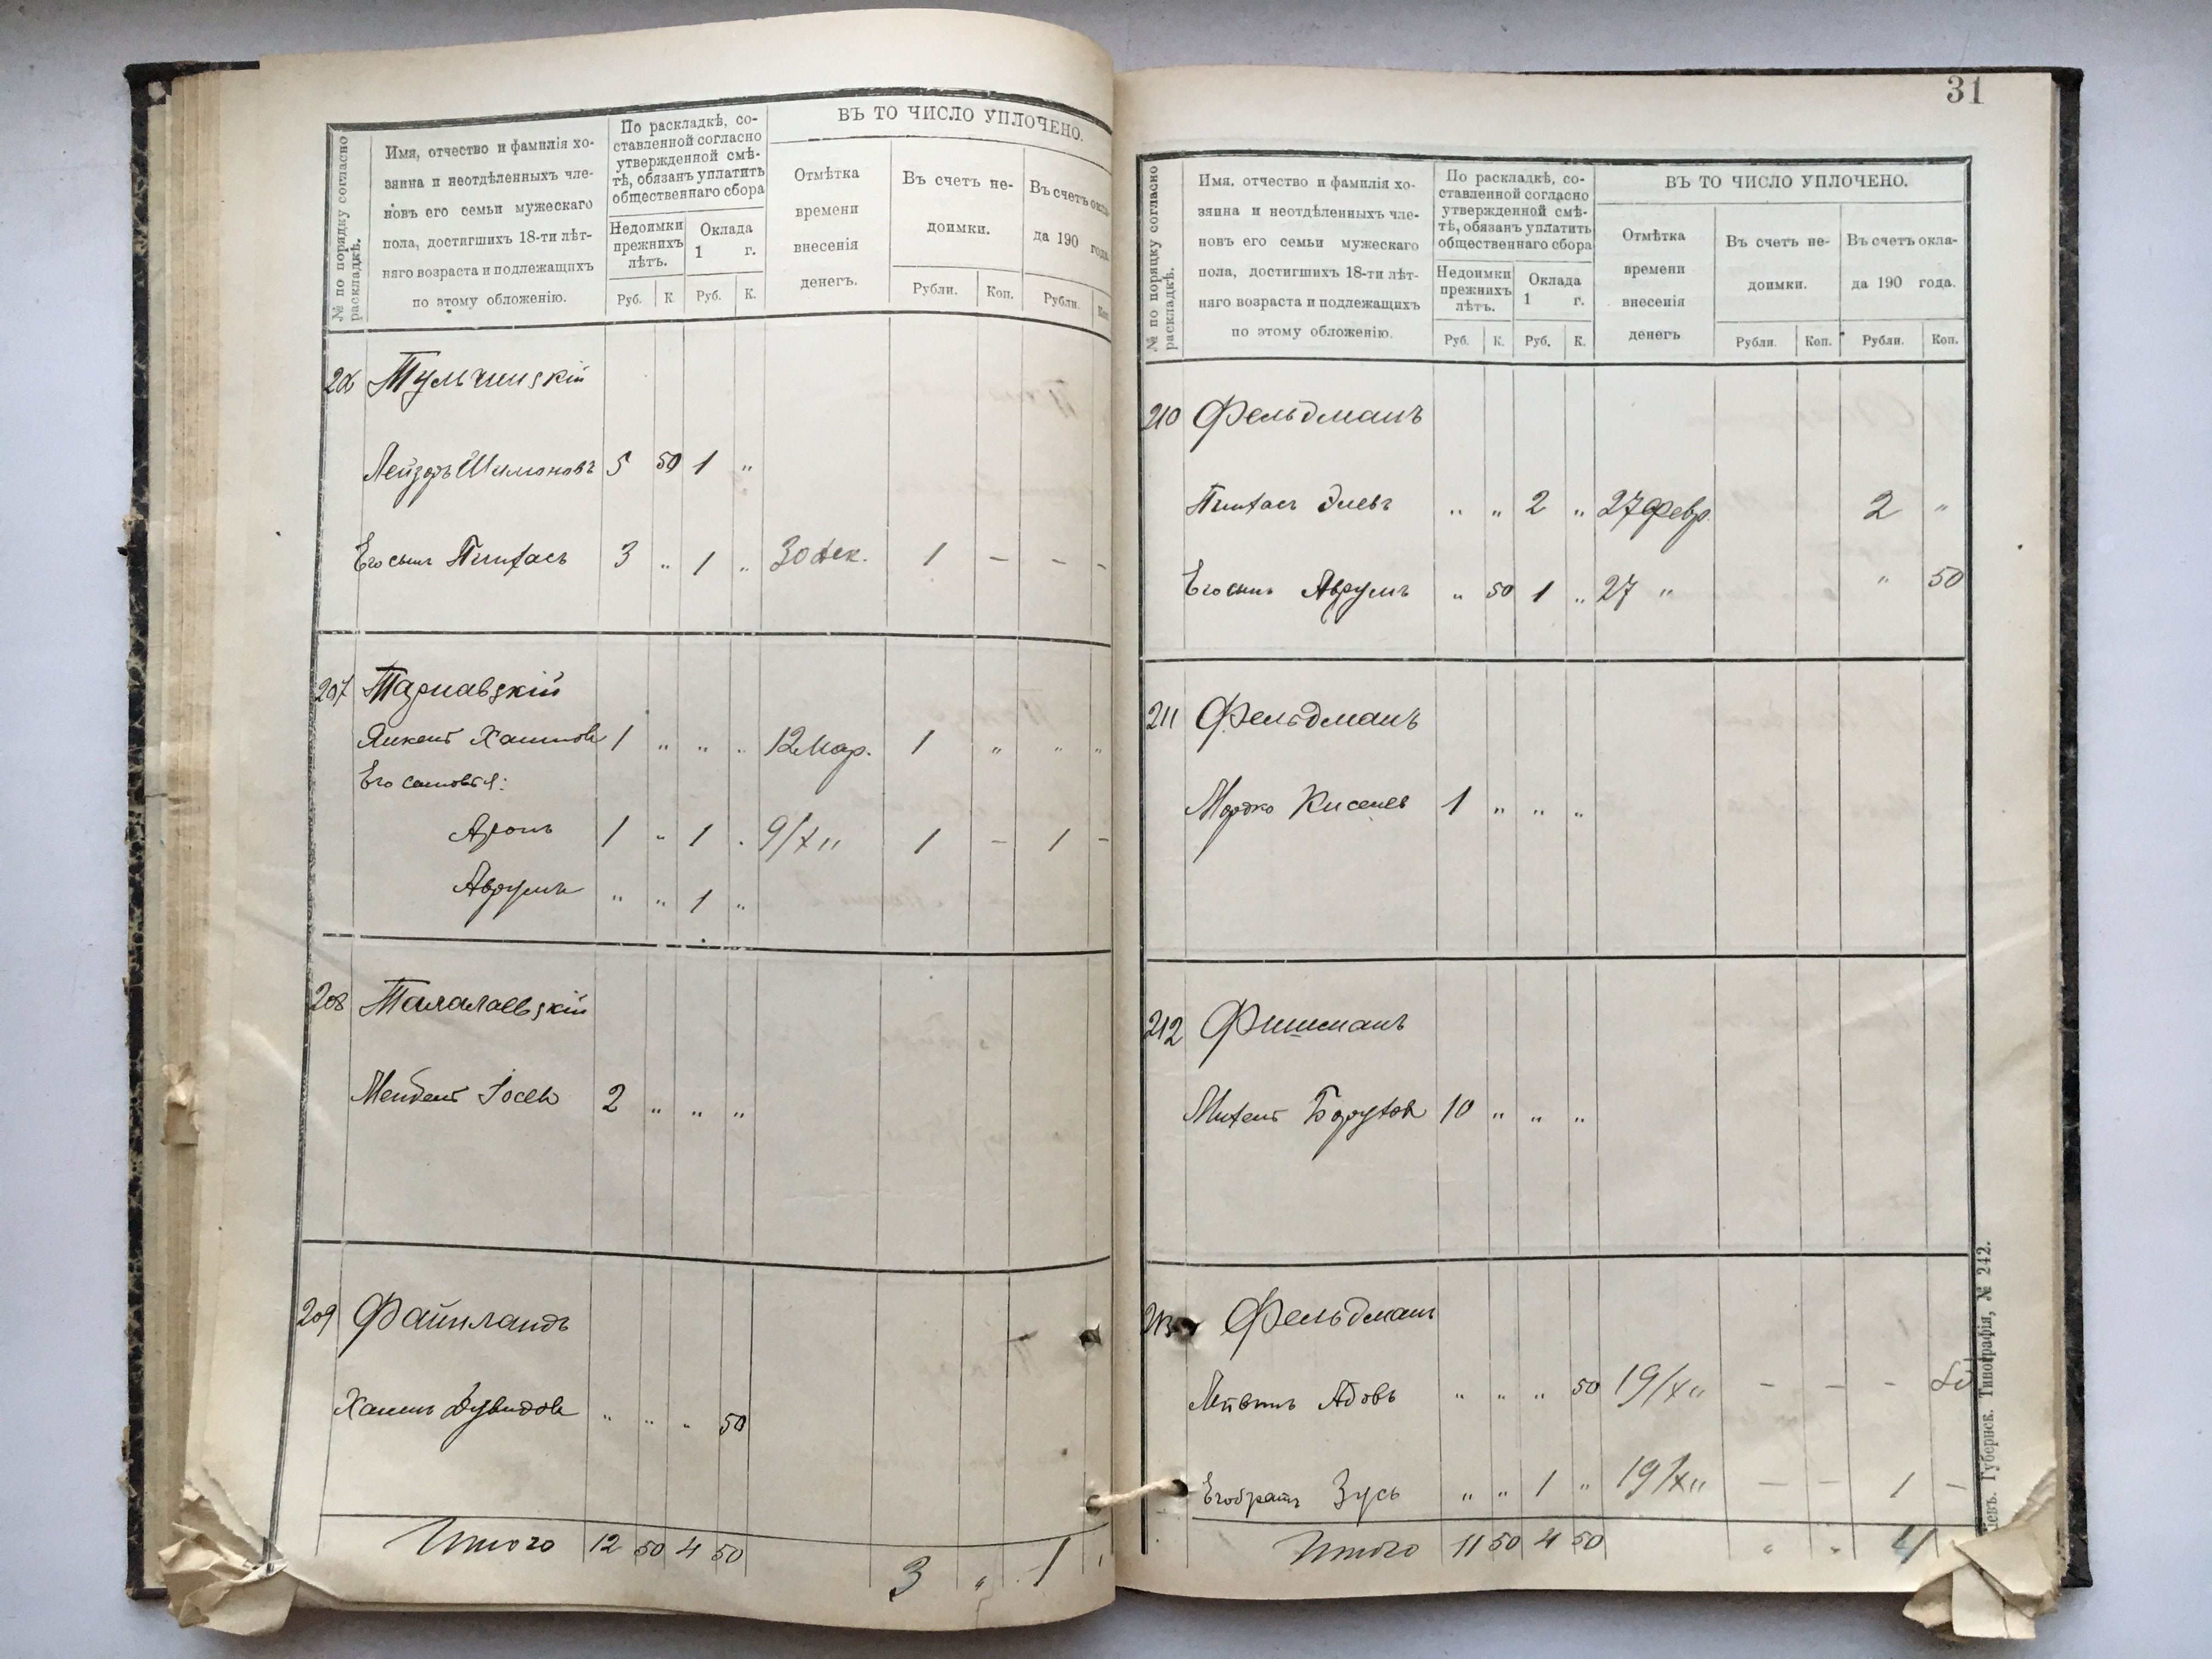 № по порядку согласно раскладкѣ.
Имя, отчество и фамилія хо-
зяина и неотдѣленныхъ чле-
новъ его семьи мужескаго
пола, достигшихъ 18-ти лѣт-
няго возраста и подлежащихъ
по этому обложенію.
По раскладкѣ, со-
ставленной согласно
утвержденной смѣ-
тѣ, обязанъ уплатить
общественнаго сбора
Недоимки
прежнихъ
лѣтъ.
Оклада
1 г.
Руб. К. Руб. К.
ВЪ ТО ЧИСЛО УПЛОЧЕНО.
Отмѣтка
времени
внесенія
денегъ.
Въ счетъ не-
доимки.
Въ счетъ окла-
да 190 года.
Рубли. Коп. Рубли. Коп.
Тульчинскій
Лейзоръ Шимоновъ 5 50 1 "
Его сынъ Пинхасъ 3 " 1 " 30 дек. 1 – – –
207 Тарнавскій
Янкель Хаимовъ 1 " " " 12 Мар. 1 " " "
Его сыновья:
Аронъ 1 " 1 " 9/XII 1 – 1 –
Аврумъ " " 1 "
208 Талалаевскій
Мендель Іосев 2 " " "
209 Файнландъ
Хаимъ Дувидов " " " 50
Итого 12 50 4 50 3 " 1 "
31
№ по порядку согласно раскладкѣ.
Имя, отчество и фамилія хо-
зяина и неотдѣленныхъ чле-
новъ его семьи мужескаго
пола, достигшихъ 18-ти лѣт-
няго возраста и подлежащихъ
по этому обложенію.
По раскладкѣ, со-
ставленной согласно
утвержденной смѣ-
тѣ, обязанъ уплатить
общественнаго сбора
Недоимки
прежнихъ
лѣтъ.
Оклада
1 г.
Руб. К. Руб. К.
ВЪ ТО ЧИСЛО УПЛОЧЕНО.
Отмѣтка
времени
внесенія
денегъ
Въ счетъ не-
доимки.
Въ счетъ окла-
да 190 года.
Рубли. Коп. Рубли. Коп.
210 Фельдманъ
Пинхасъ Элевъ " " 2 " 27 Февр. 2 "
Его сынъ Аврумъ " 50 1 " 27 " " 50
211 Фельдманъ
Мордко Киселев 1 " " "
212 Фишманъ
Михель Борухов 10 " " "
213 Фельдманъ
Лейбишъ Абовъ " " " 50 19/XII – – – 50
Его братъ Зусь " " 1 " 19/XII – – 1 –
Итого 11 50 4 50 " " 4
Губернск. Типографія, № 242.